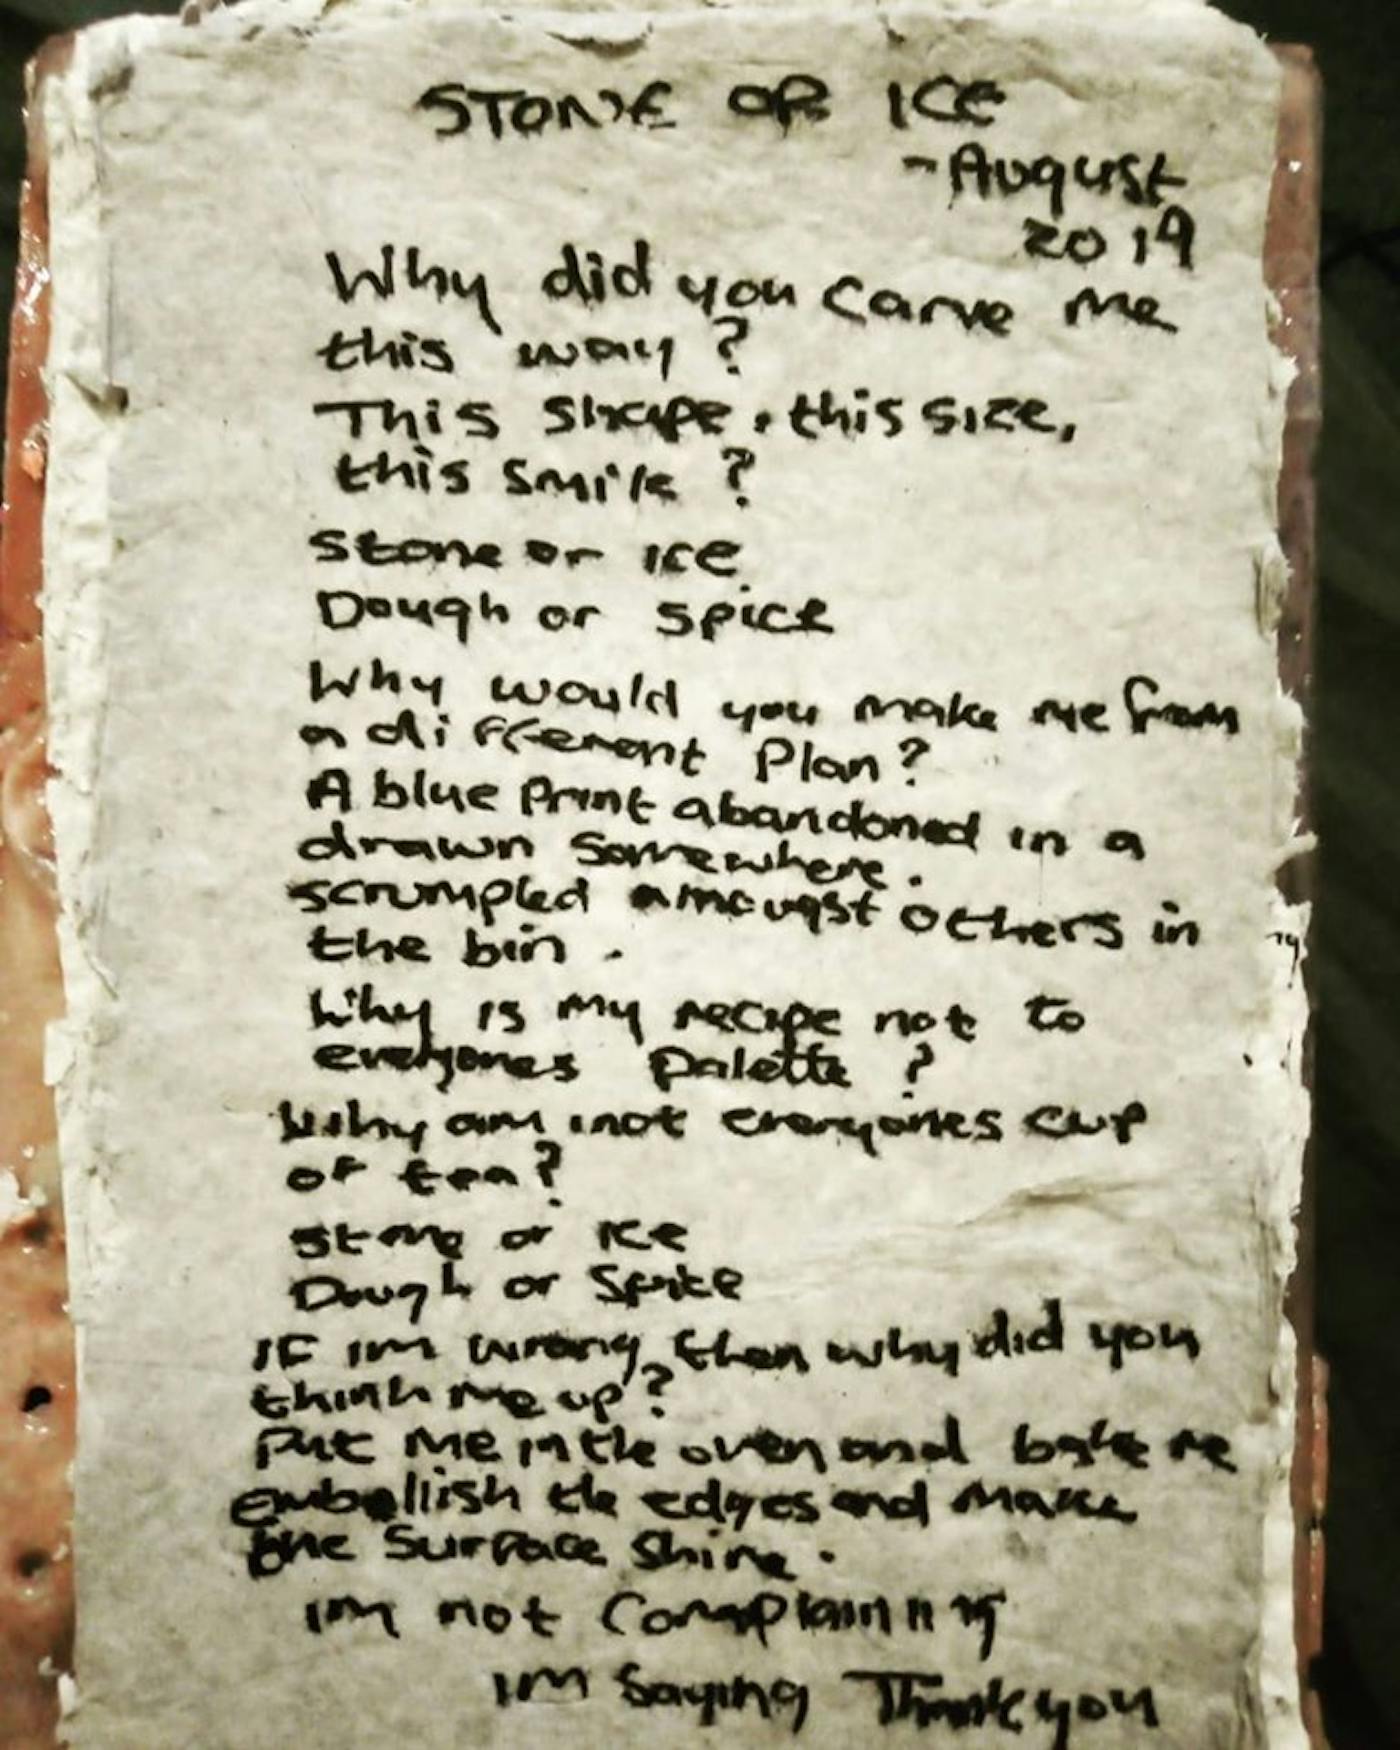 STONE OR ICE
- August
2019
Why did you carve me
this way?
This shape, this size,
this smile?
Stone or ice
Dough or spice
Why would you make me from
a different Plan?
A blue Print abandoned in a
drawn somewhere.
scrumpled amoungst others in
the bin.
Why is my recipe not to
everyones Palette?
Why am i not everyones cup
of tea?
Stone or ice
Dough or Spice
IF im wrong, then why did you
think me up?
Put me in the oven and bake me
embellish the edges and make
the Surface shine.
im not Complaining
im Saying Thank you